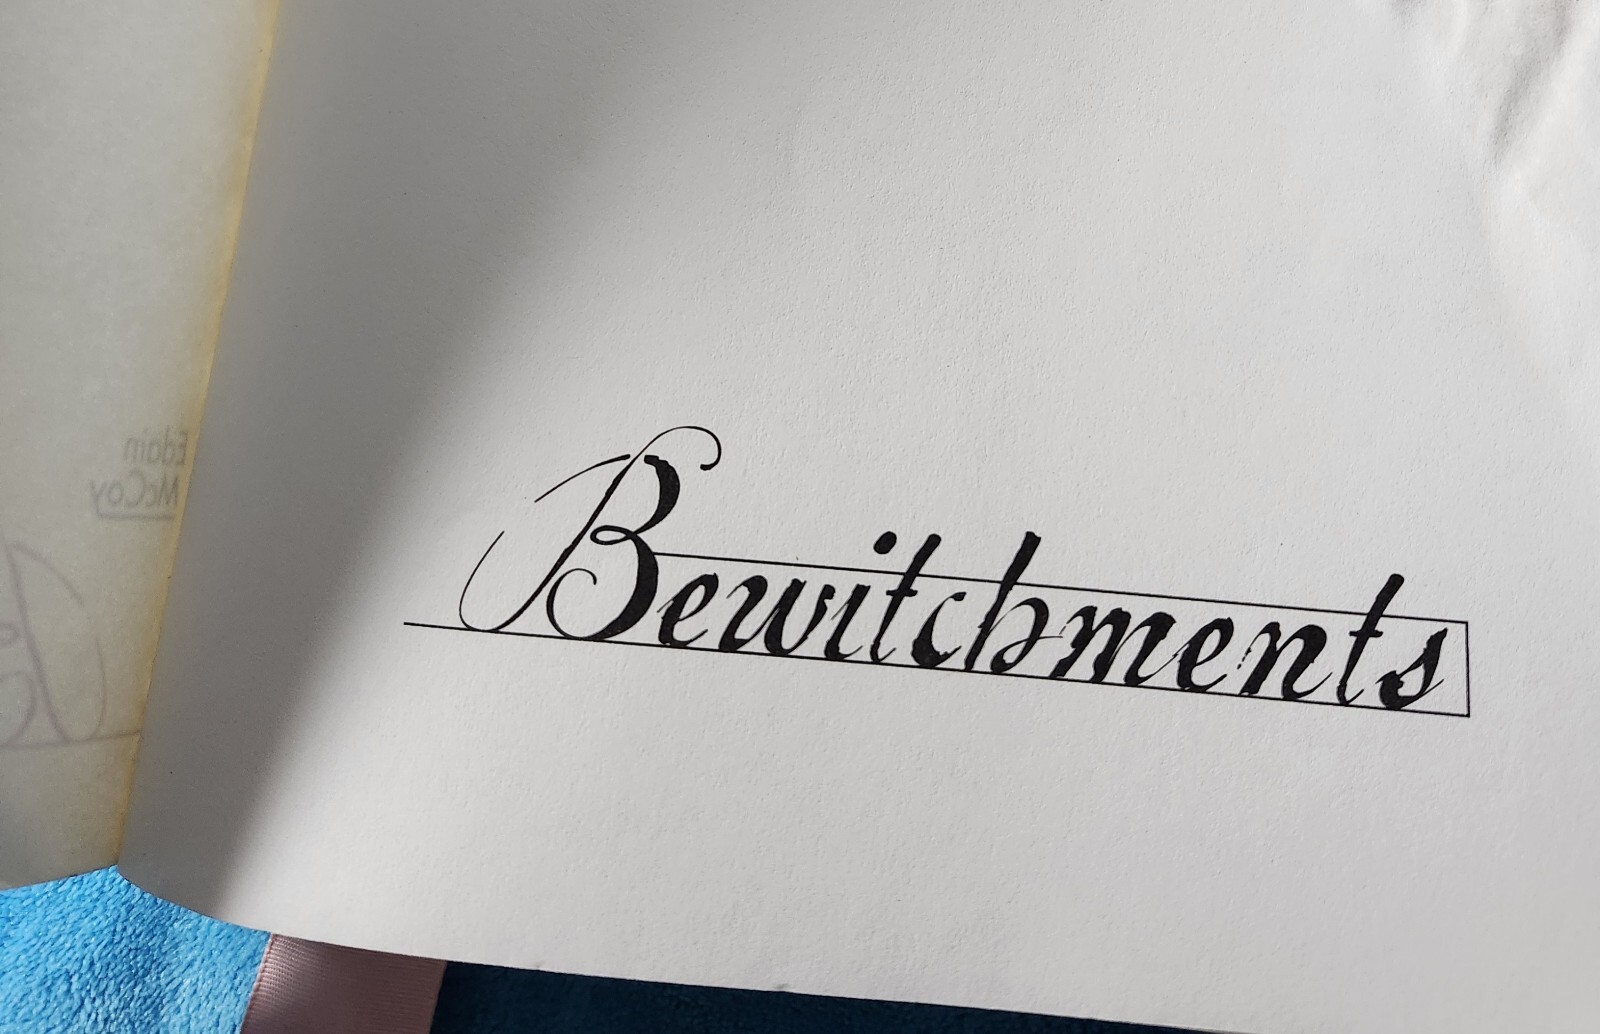 Edain
McCoy
Bewitchments